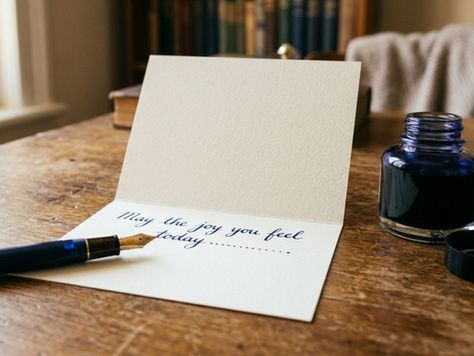 May the joy you feel
today..............